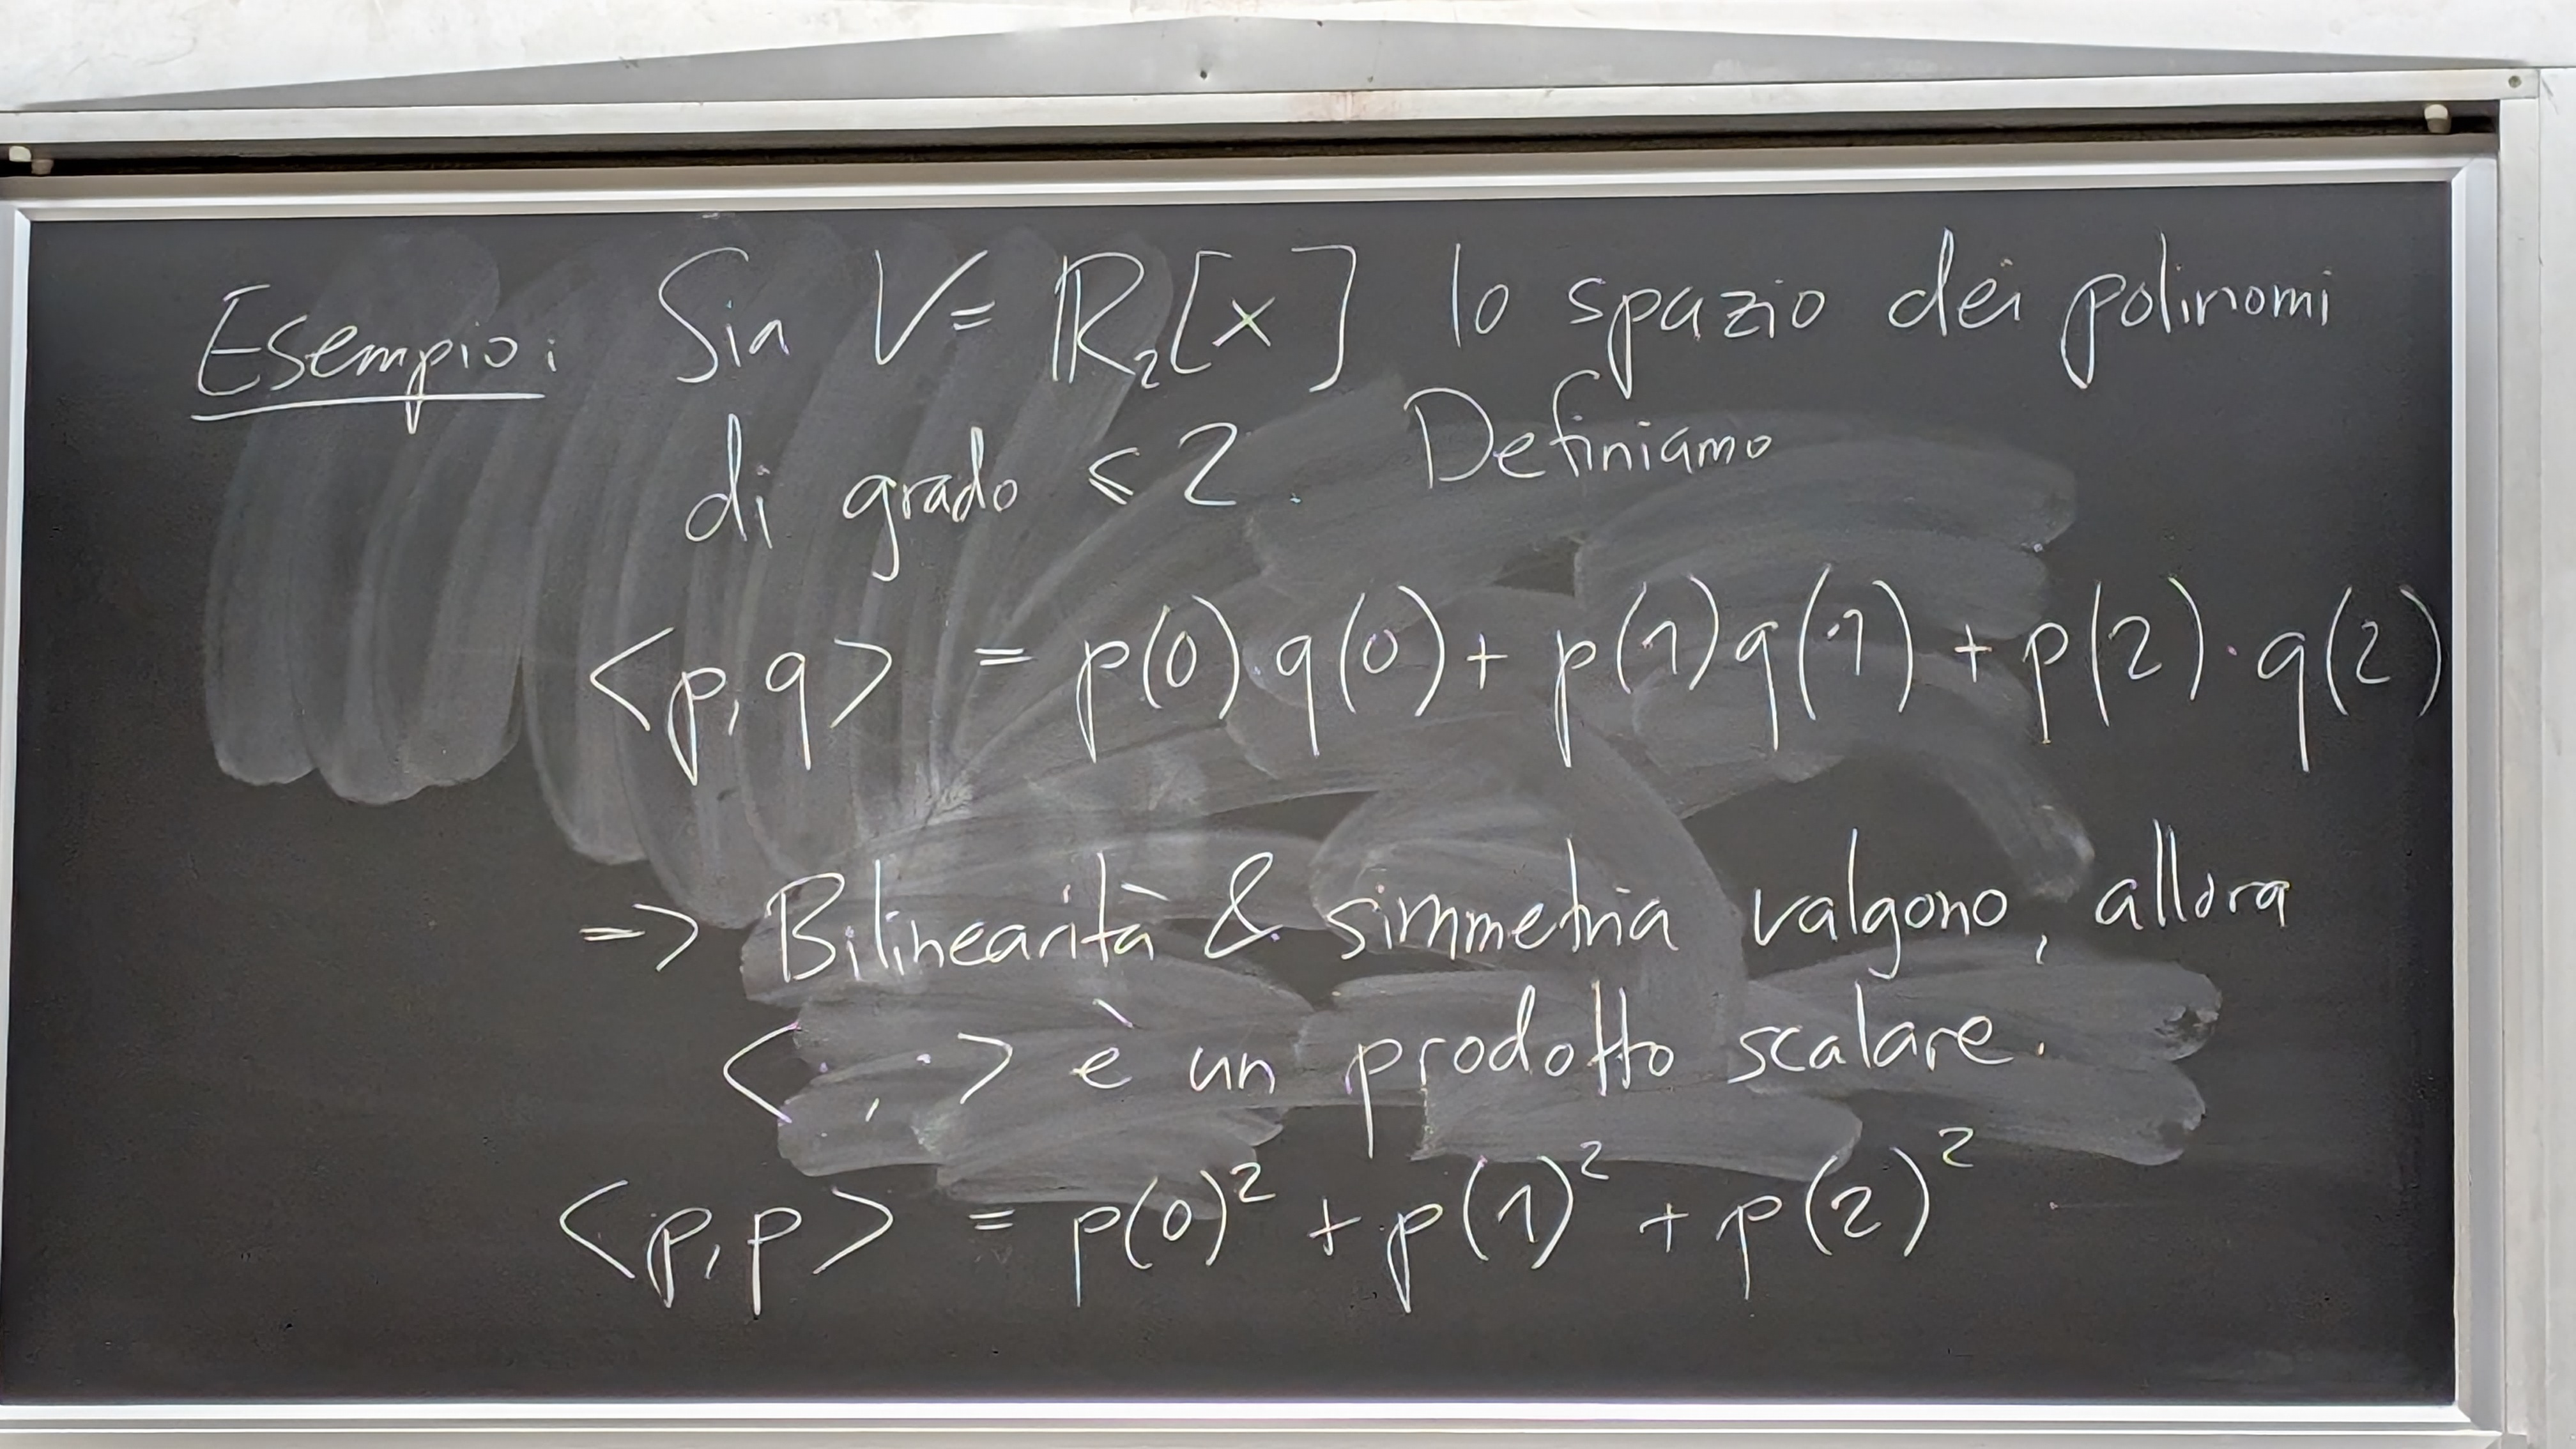 Esempio: Sia V = ℝ₂[x] lo spazio dei polinomi
di grado ≤ 2. Definiamo
<p,q> = p(0)q(0) + p(1)q(1) + p(2)·q(2)
=> Bilinearità & simmetria valgono, allora
<·,·> è un prodotto scalare.
<p,p> = p(0)² + p(1)² + p(2)²